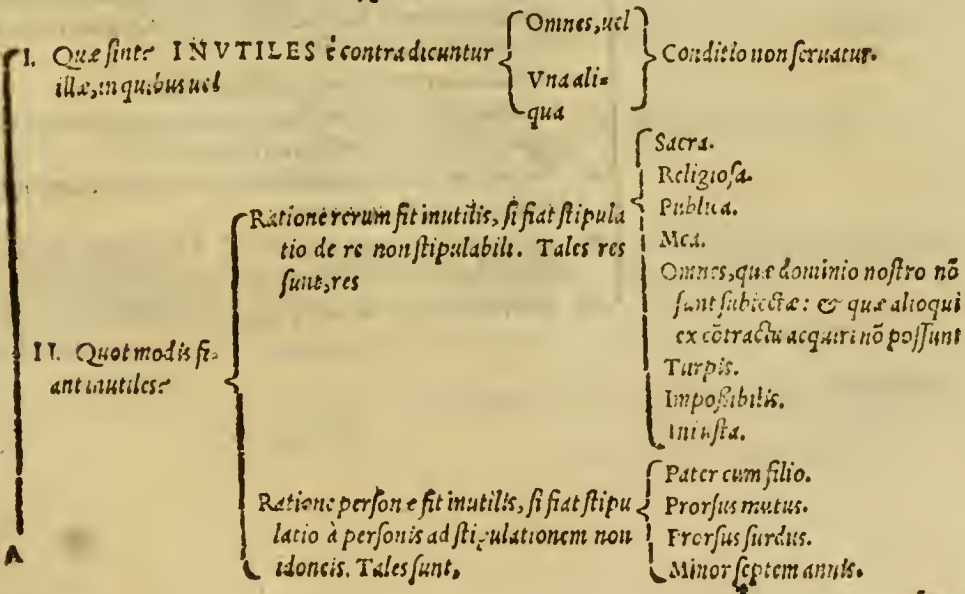 I. Quæ sint? INVTILES è contradicuntur
illæ, in quibus uel
Omnes, uel
Vna ali=
qua
Conditio non seruatur.
II. Quot modis fi=
ant inutiles?
Ratione rerum fit inutilis, si fiat stipula
tio de re non stipulabili. Tales res
sunt, res
Sacra.
Religiosa.
Publica.
Mea.
Omnes, quæ dominio nostro nõ
sunt subiectæ: & quæ alioqui
ex cõtractu acquiri nõ possunt
Turpis.
Impossibilis.
Iniusta.
Ratione personæ fit inutilis, si fiat stipu
latio à personis ad stipulationem non
idoneis. Tales sunt,
Pater cum filio.
Prorsus mutus.
Prorsus surdus.
Minor septem annis.
A